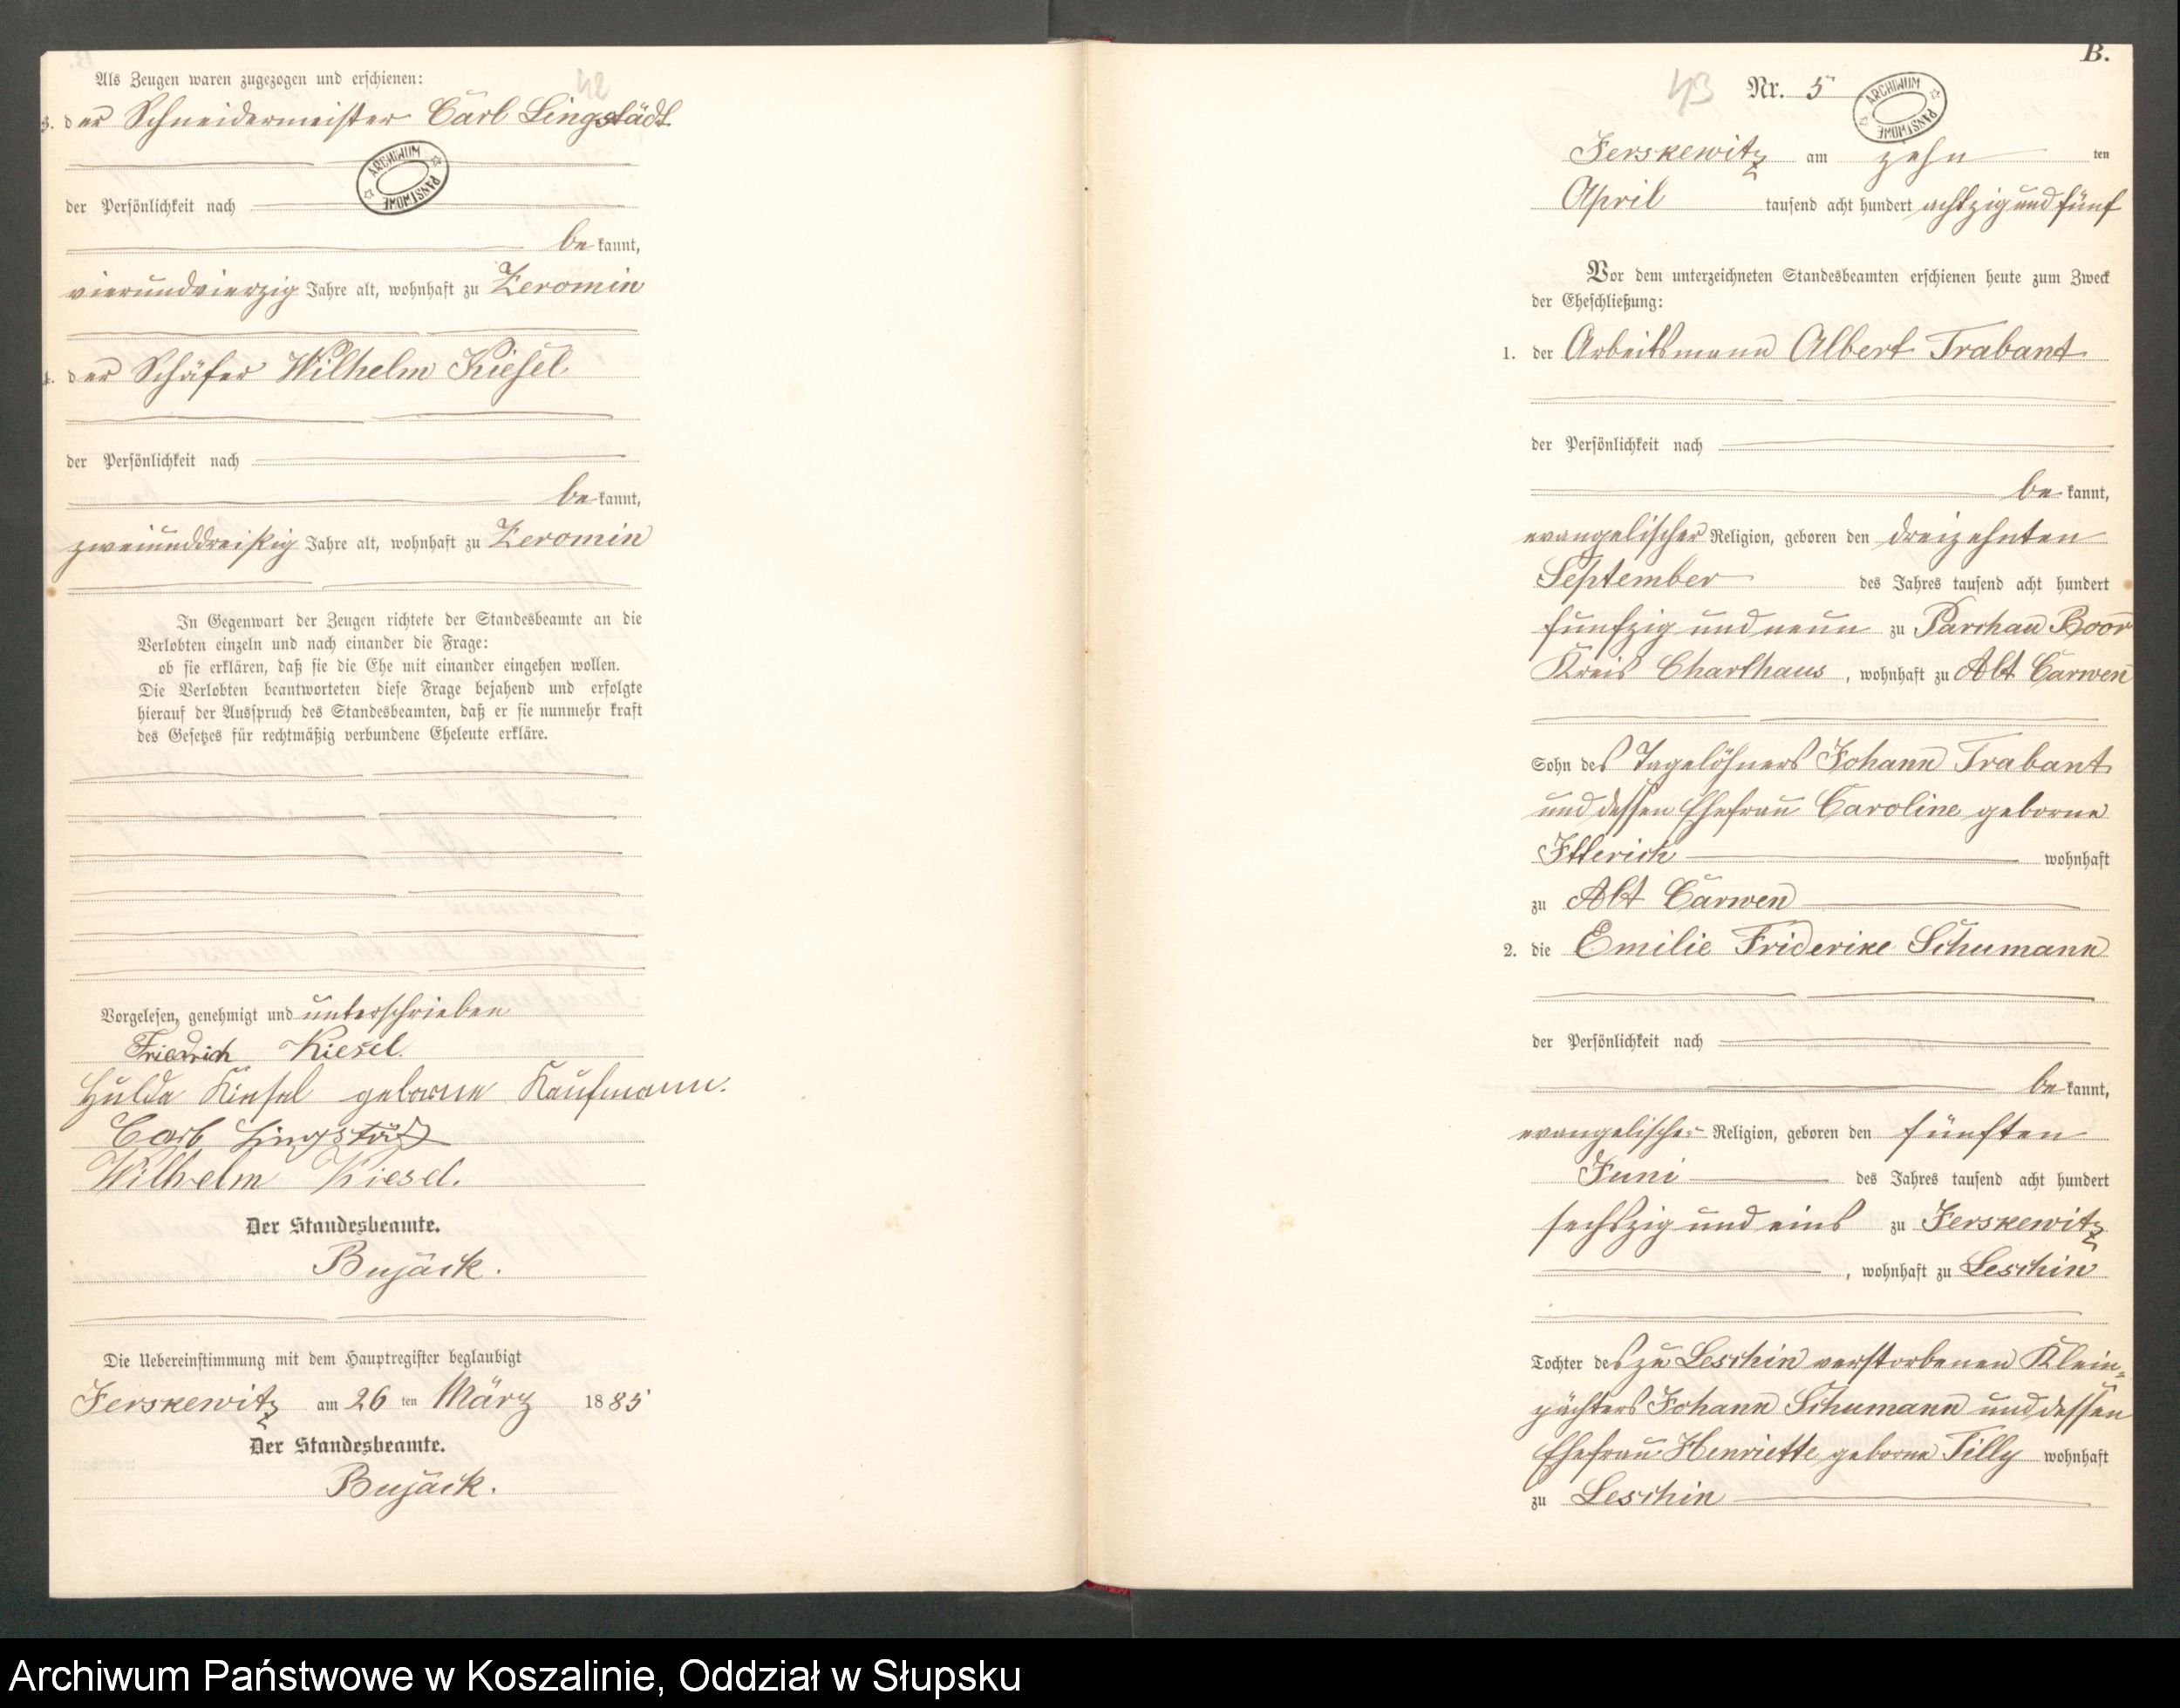 Als Zeugen waren zugezogen und erschienen:
42
3. der Schneidermeister Carl Lingstädt
ARCHIWUM PAŃSTWOWE
der Persönlichkeit nach
be kannt,
vierundvierzig Jahre alt, wohnhaft zu Zeromin
4. der Schäfer Wilhelm Kiesel
der Persönlichkeit nach
be kannt,
zweiunddreißig Jahre alt, wohnhaft zu Zeromin
In Gegenwart der Zeugen richtete der Standesbeamte an die
Verlobten einzeln und nach einander die Frage:
ob sie erklären, daß sie die Ehe mit einander eingehen wollen.
Die Verlobten beantworteten diese Frage bejahend und erfolgte
hierauf der Ausspruch des Standesbeamten, daß er sie nunmehr kraft
des Gesetzes für rechtmäßig verbundene Eheleute erkläre.
Vorgelesen, genehmigt und unterschrieben
Friedrich Kiesel.
Hulda Kiesel geborne Kaufmann.
Carl Lingstädt
Wilhelm Kiesel.
Der Standesbeamte.
Bujack.
Die Uebereinstimmung mit dem Hauptregister beglaubigt
Jerskewitz am 26 ten März 1885
Der Standesbeamte.
Bujack.
B.
43
Nr. 5
ARCHIWUM PAŃSTWOWE
Jerskewitz am zehn ten
April tausend acht hundert achtzig und fünf
Vor dem unterzeichneten Standesbeamten erschienen heute zum Zweck
der Eheschließung:
1. der Arbeitsmann Albert Trabant
der Persönlichkeit nach
be kannt,
evangelischer Religion, geboren den dreizehnten
September des Jahres tausend acht hundert
funfzig und neun zu Parchau
Kreis Charthaus, wohnhaft zu Alt Carwen
Sohn des Tagelöhners Johann Trabant
und dessen Ehefrau Caroline geborne
Itterich wohnhaft
zu Alt Carwen
2. die Emilie Friderike Schumann
der Persönlichkeit nach
be kannt,
evangelischer Religion, geboren den fünften
Juni des Jahres tausend acht hundert
sechszig und eins zu Jerskewitz
, wohnhaft zu Leschin
Tochter des zu Leschin verstorbenen Klein=
pächters Johann Schumann und dessen
Ehefrau Henriette geborne Tilly wohnhaft
zu Leschin
Archiwum Państwowe w Koszalinie, Oddział w Słupsku